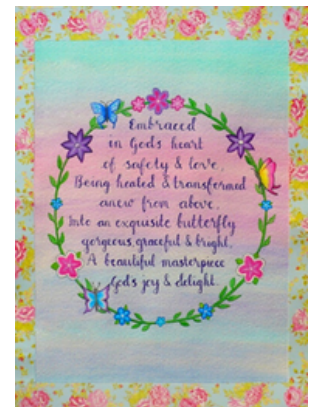 Embraced
in God's heart
of safety & love,
Being healed & transformed
anew from above.
Into an exquisite butterfly
gorgeous, graceful & bright,
A beautiful masterpiece
God's joy & delight.